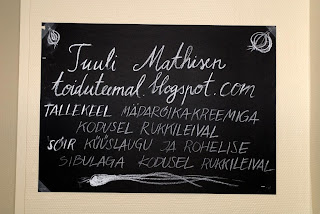 Tuuli Mathisen
toiduteemal.blogspot.com
TALLEKEEL MÄDARÕIKA-KREEMIGA
KODUSEL RUKKILEIVAL
SÕIR KÜÜSLAUGU JA ROHELISE
SIBULAGA KODUSEL RUKKILEIVAL